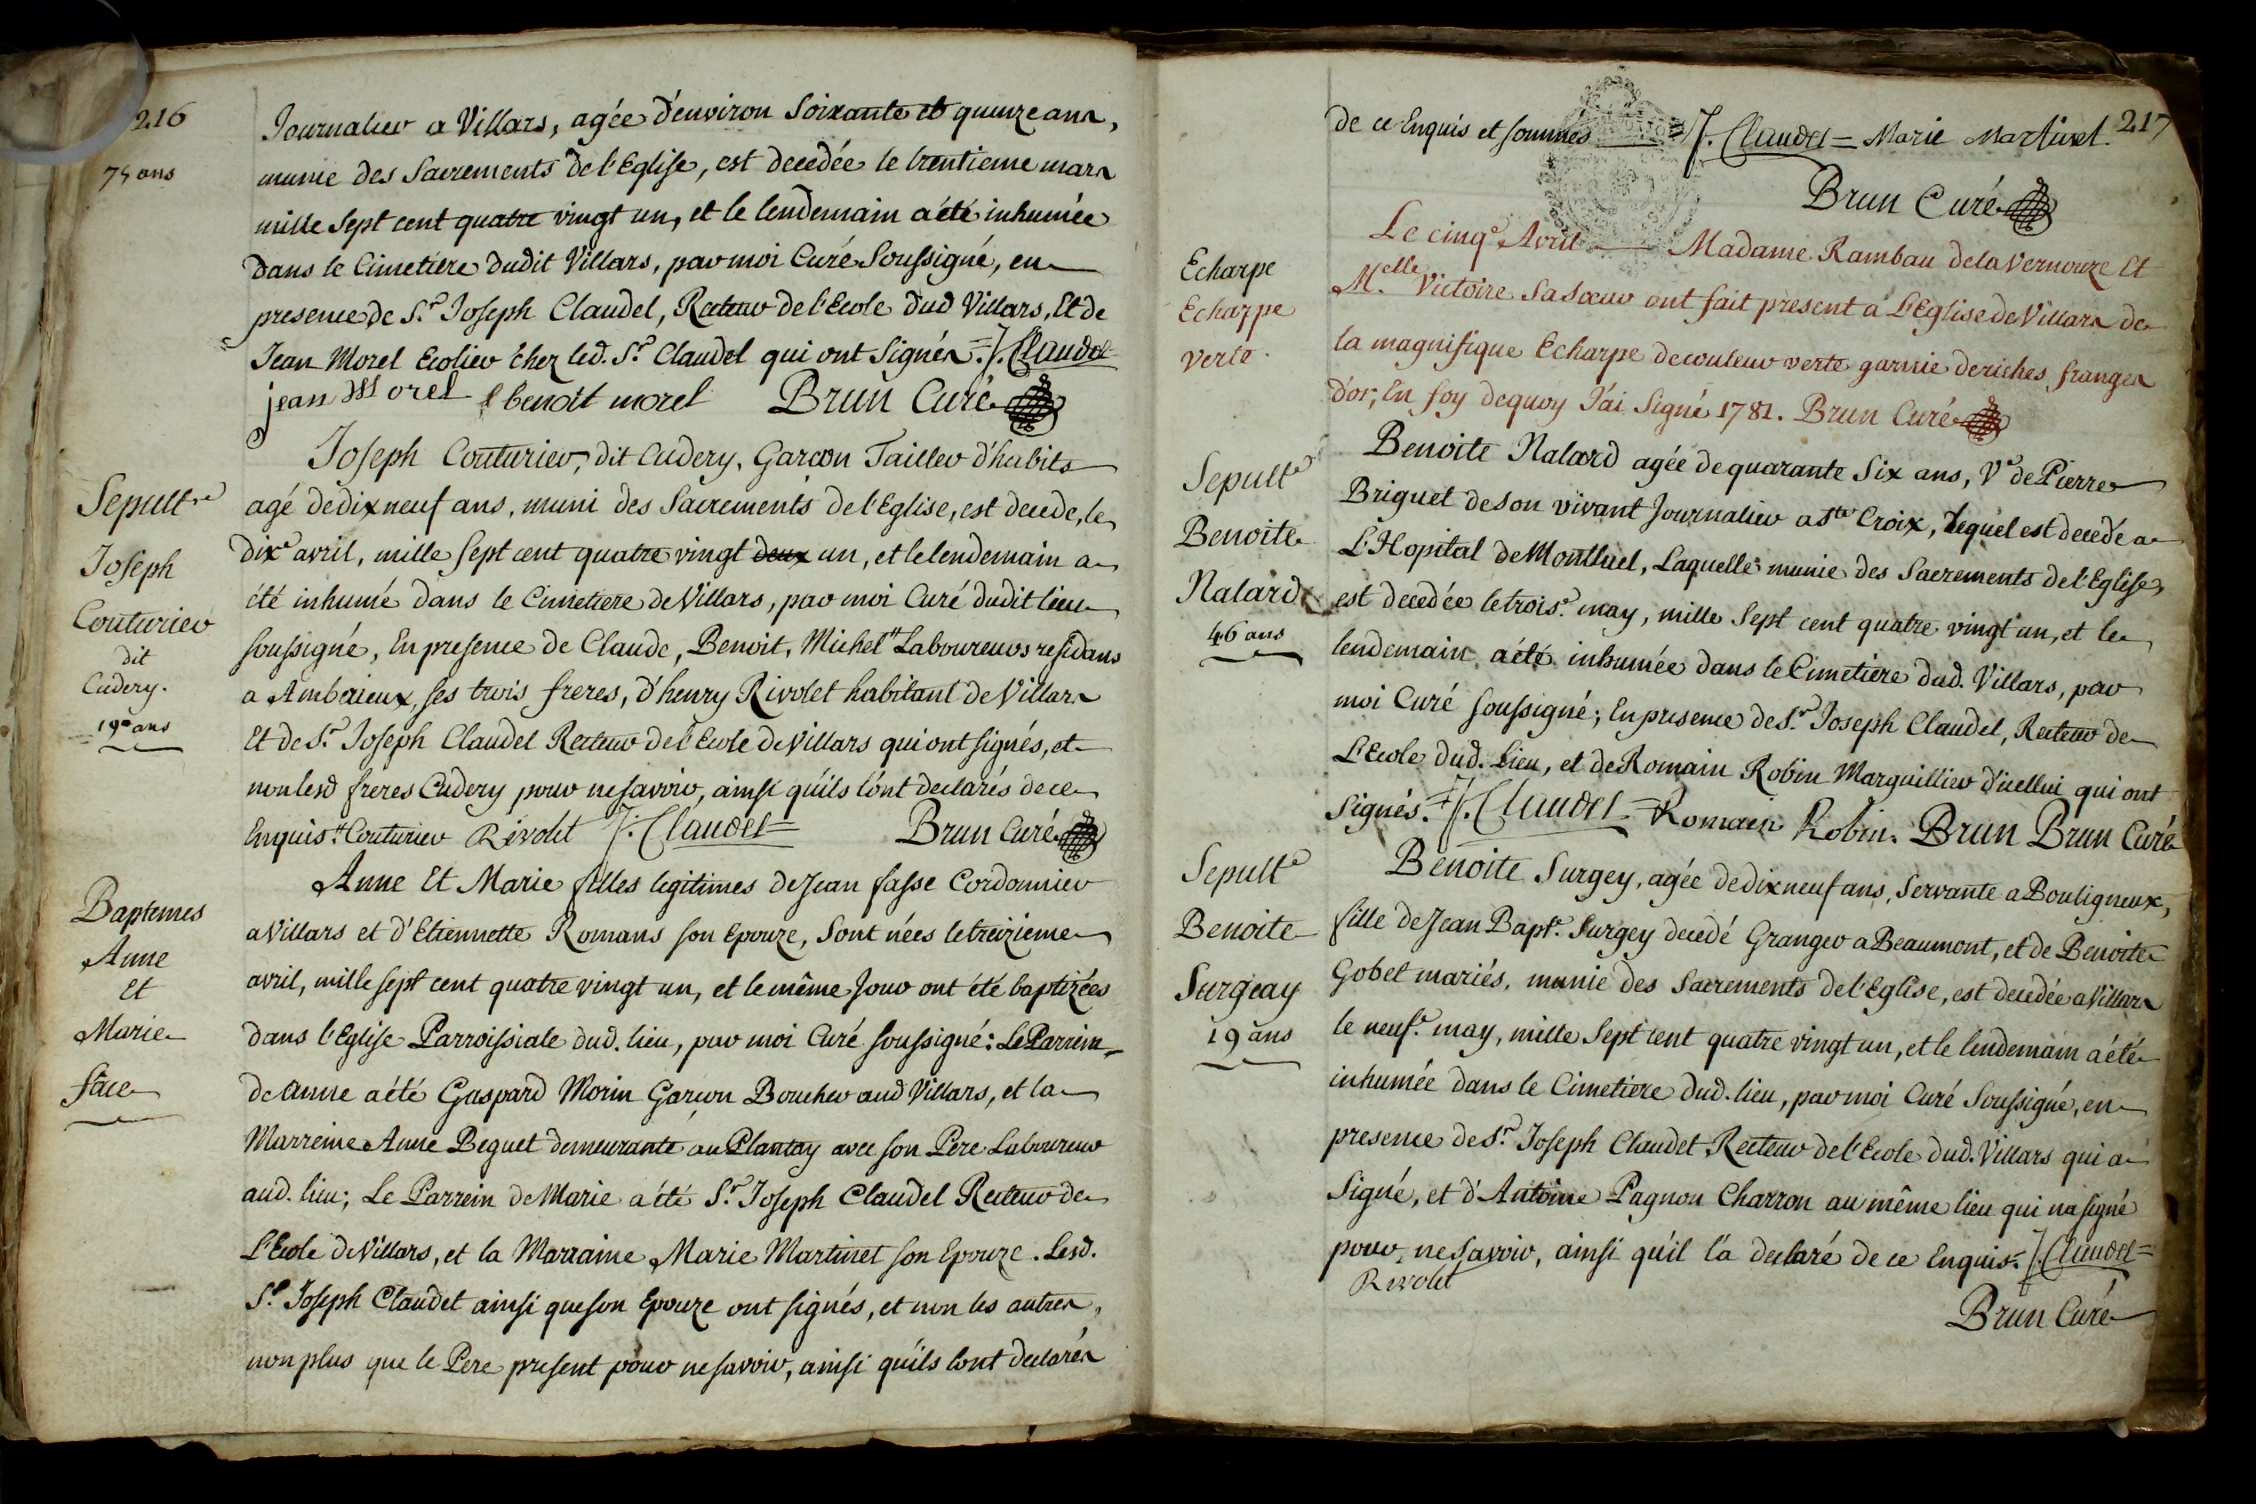 216
75 ans
Journalier a Villars, agée d'environ Soixante et quinze ans,
munie des Sacrements de l'Eglise, est decedée le trentieme mars
mille Sept cent quatre vingt un, et le lendemain a été inhumée
dans le Cimetiere dudit Villars, par moi Curé Soussigné, en
presence de S.r Joseph Claudel, Recteur de l'Ecole dud Villars, Et de
Jean Morel Ecolier chez led. S.r Claudel qui ont Signés. = J. Claudel
jean Morel benoit morel Brun Curé
Sepult.re
Joseph
Couturier
dit
Cudery.
19 ans
Joseph Couturier, dit Cudery, Garcon Tailler d'habits
agé de dix neuf ans, muni des Sacrements de l'Eglise, est decede, le
dix.e avril, mille Sept cent quatre vingt deux un, et le lendemain a
été inhumé dans le Cimetiere de Villars, par moi Curé dudit lieu
soussigné, En presence de Claude, Benoit, Michel Laboureurs residans
a Amberieux, ses trois freres, d'henry Rivolet habitant de Villars
Et de S.r Joseph Claudel Recteur de l'Ecole de Villars qui ont signés, et
non lesd freres Cudery pour ne savoir, ainsi qu'ils l'ont declarés de ce
Enquis. Couturier Rivolet J. Claudel = Brun Curé
Baptemes
Anne
Et
Marie
face
Anne Et Marie filles legitimes de Jean fasse Cordonnier
a Villars et d'Etiennette Romans son Epouze, Sont nées le treizieme
avril, mille sept cent quatre vingt un, et le même Jour ont été baptizées
dans l'Eglise Parroissiale dud. lieu, par moi Curé soussigné: Le Parrein
de anne a été Gaspard Morin Garçon Boucher aud Villars, et la
Marreine Anne Beguet demeurante au Plantay avec son Pere Laboureur
aud. lieu; Le Parrein de Marie a été S.r Joseph Claudel Recteur de
L'Ecole de Villars, et la Marraine Marie Martinet son Epouze. Lesd.
S.r Joseph Claudel ainsi que son Epouze ont signés, et non les autres,
non plus que le Pere present pour ne savoir, ainsi qu'ils l'ont declarés
217
de ce Enquis et sommés = J. Claudel = Marie Martinet.
Brun Curé
Echarpe
Echarpe
verte.
Le cinq.e Avril Madame Rambau de la Vernouze Et
M.elle Victoire Sa Sœur ont fait present a L'Eglise de Villars de
la magnifique Echarpe de couleur verte garnie de riches franges
d'or, En foy dequoy J'ai Signé 1781. Brun Curé
Sepult.e
Benoite
Nalard
46 ans
Benoite Nalard agée de quarante Six ans, V.e de Pierre
Briguet de Son vivant Journalier a S.te Croix, lequel est decedé a
L'Hopital de Montluel, Laquelle munie des Sacrements de l'Eglise,
est decedée le trois.e may, mille Sept cent quatre vingt un, et le
lendemain a été inhumée dans le Cimetiere dud. Villars, par
moi Curé soussigné; En presence de S.r Joseph Claudel, Recteur de
L'Ecole dud. Lieu, et de Romain Robin Marguillier d'icellui qui ont
Signés. = J. Claudel = Romain Robin. Brun Brun Curé
Sepult.e
Benoite
Surgeay
19 ans
Benoite Surgey, agée de dix neuf ans, Servante a Bouligneux,
fille de Jean Bapt.e Surgey decedé Granger a Beaumont, et de Benoite
Gobet mariés, munie des Sacrements de l'Eglise, est decedée a Villars
le neuf.e may, mille Sept cent quatre vingt un, et le lendemain a été
inhumée dans le Cimetiere dud. lieu, par moi Curé Soussigné, en
presence de S.r Joseph Claudel Recteur de l'Ecole dud. Villars qui a
Signé, et d'Antoine Pagnon Charron au même lieu qui n'a signé
pour ne savoir, ainsi qu'il l'a declaré de ce Enquis. J. Claudel =
Rivolet
Brun Curé